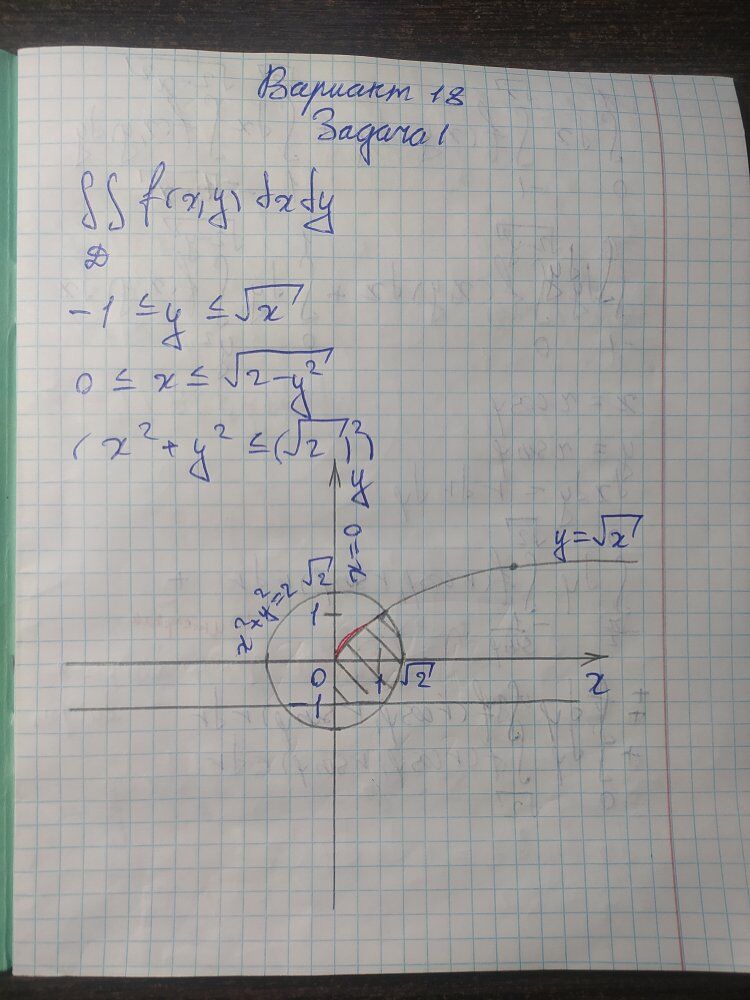 Вариант 18
Задача 1
∬ f(x,y) dxdy
D
-1 ≤ y ≤ √x
0 ≤ x ≤ √2-y²
( x² + y² ≤ (√2)²)
y
x=0
y=√x
√2
x²+y²=2
1
0
1
√2
x
-1